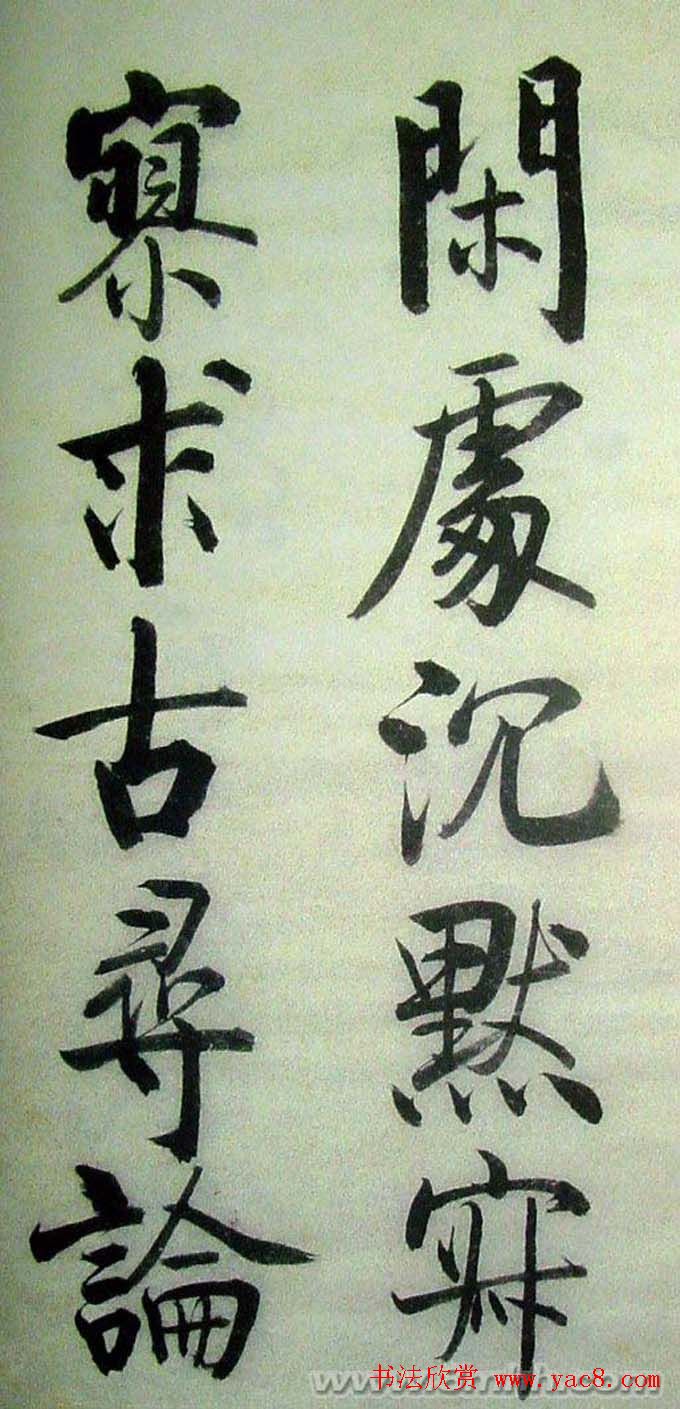 閑處沉默寂
寥求古尋論
书法欣赏 www.yac8.com